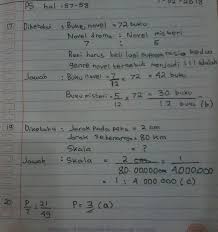 PS hal : 57-58
Diketahui : Buku novel = 72 buku
Novel drama : Novel misteri
7 : 5
Reni harus beli lagi supaya masing kedua
genre novel tersebut menjadi 1:1 adalah
Jawab : Buku novel = 7/12 × 72 = 42 buku
Buku misteri = 5/12 × 72 = 30 buku
12 buku (b)
Diketahui : Jarak pada peta = 2 cm
Jarak sebenarnya = 80 km
Skala = ?
Jawab : Skala = 2 cm / 80.000.000 = 1 / 4.000.000
= 1 : 4.000.000 (d)
20) P/7 = 21/49 P = 3 (a)